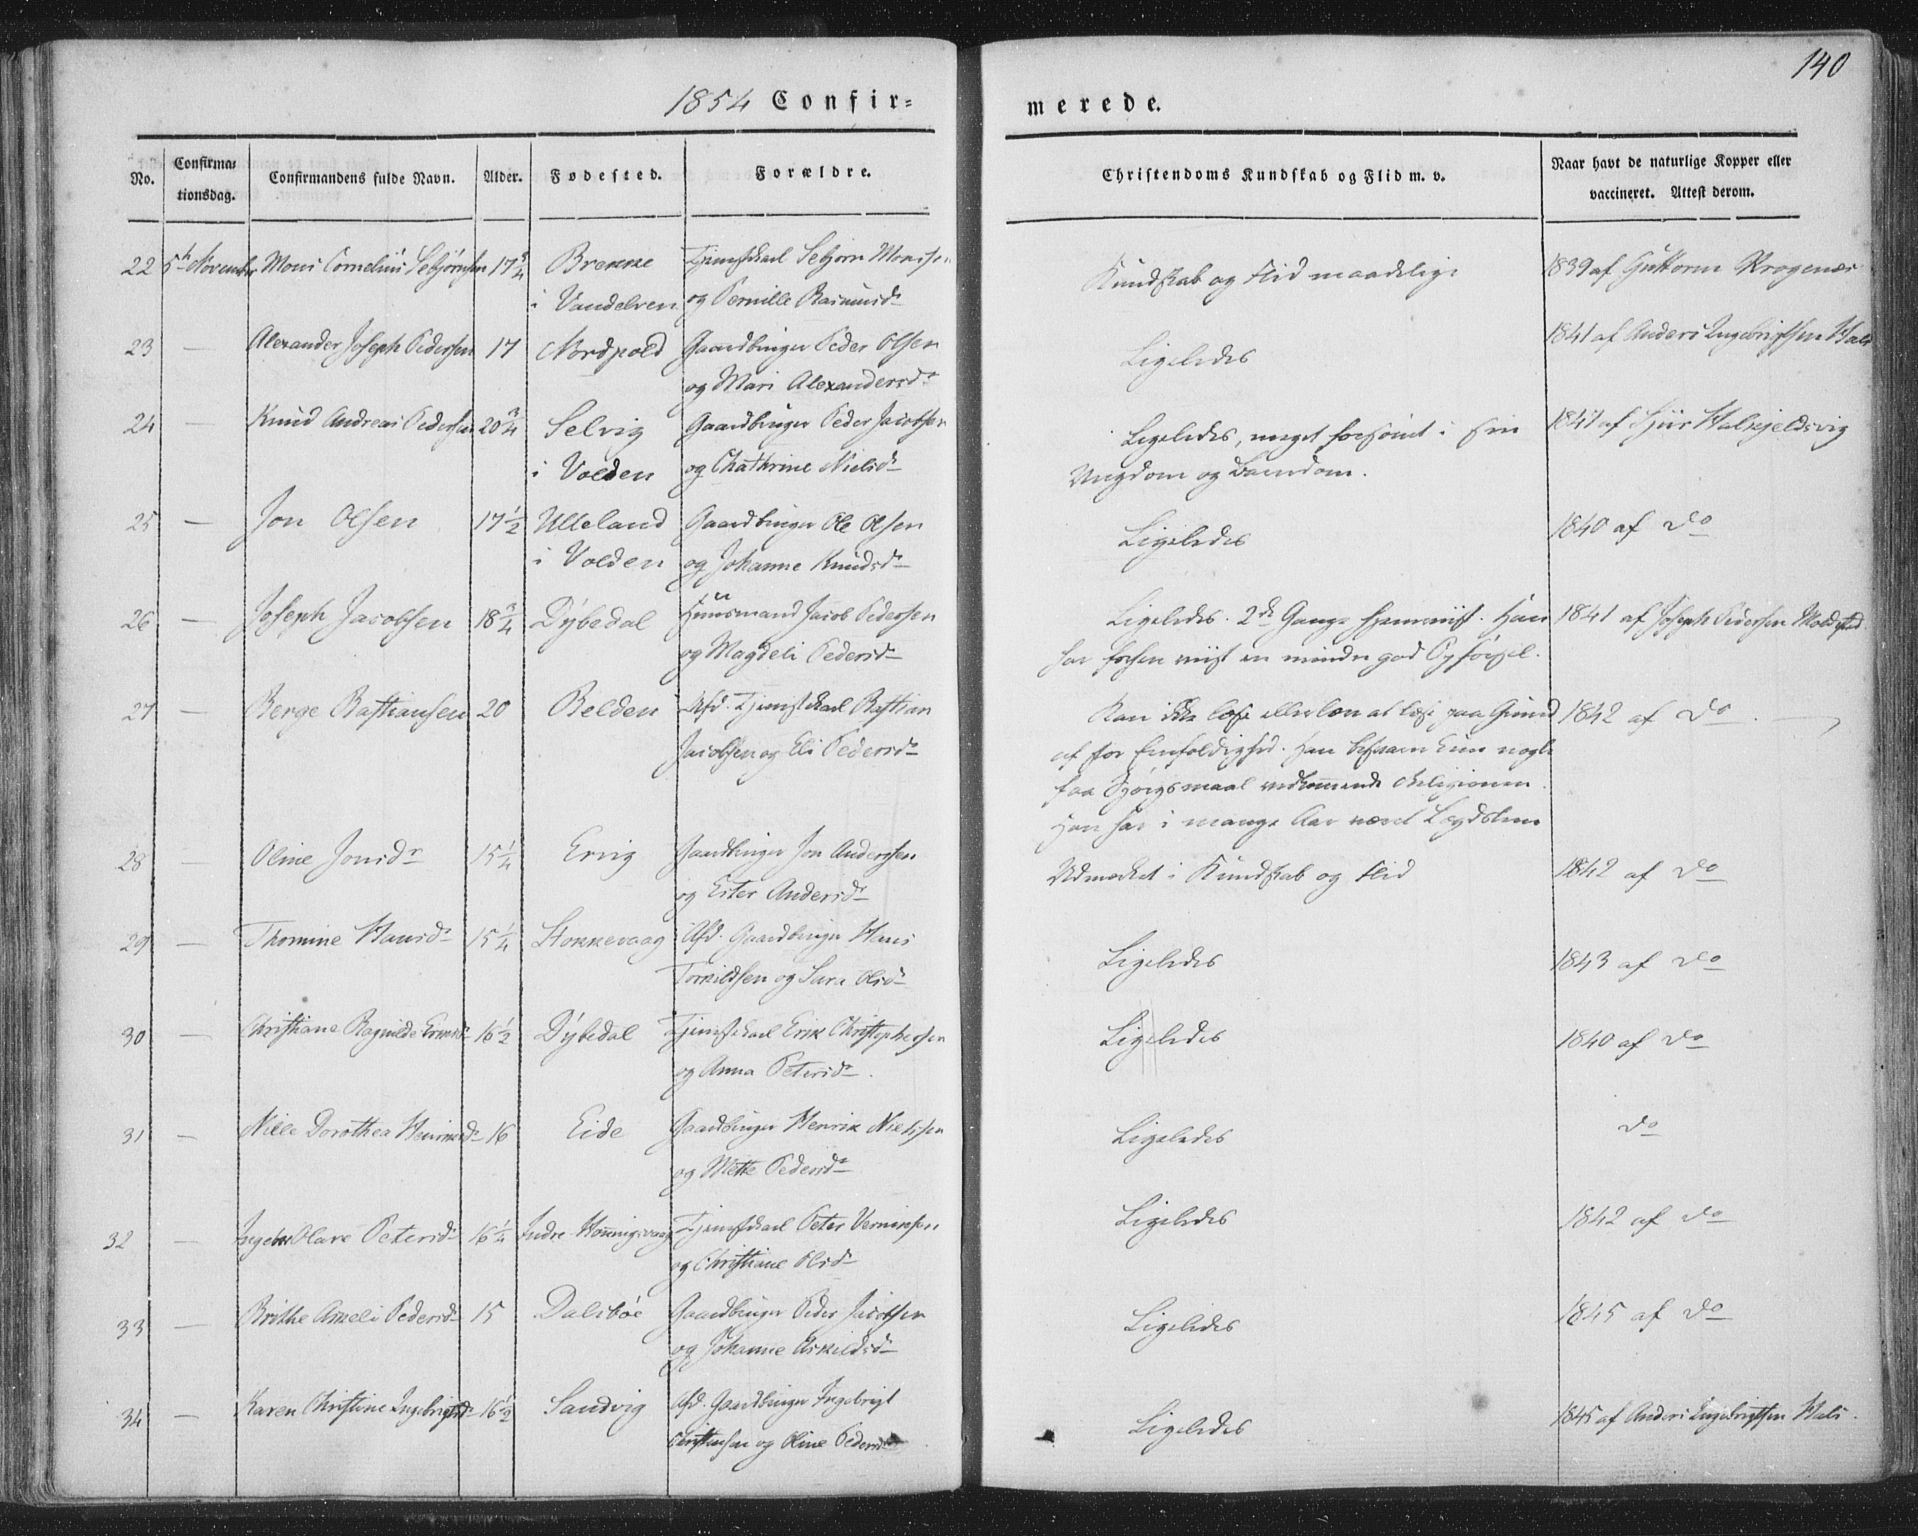 140
1854 Confir=
merede.
No. Confirma=tionsdag. Confirmandens fulde Navn. Alder. Fødested. Forældre. Christendoms Kundskab og Flid m. v. Naar havt de naturlige Kopper eller vaccineret. Attest derom.
22 5te November Mons Cornelius Sebjørnsen 17 3/4 Brekke Tjenstkarl Sebjørn Monsen Kundskab og Flid maadelige 1839 af Guttorm Krogenæs
i Vandelven og Pernille Rasmusdr
23 — Alexander Joseph Pedersen 17 Nordpold Gaardbruger Peder Olsen Ligeledes 1841 af Anders Ingebrigtsen Hals
og Mari Alexandersdr
24 — Knud Andreas Pedersen 20 3/4 Selvig Gaardbruger Peder Jacobsen Ligeledes, meget forsømt i sin 1841 af
i Volden og Chathrine Nielsdr Ungdom og Barndom.
25 — Jon Olsen 17 1/2 Ulleland Gaardbruger Ole Olsen Ligeledes 1840 af Do
i Volden og Johanne Knudsdr
26 — Joseph Jacobsen 18 3/4 Dybedal Huusmand Jacob Pedersen Ligeledes. 2de Gange fremviist. Han 1841 af Joseph Pedersen Moldestad
og Magdeli Pedersdr har forhen viist en mindre god Opførsel.
27 — Berge Bastiansen 20 Belden Afd. Tjenstkarl Bastian Kan ikke læse eller lære at læse paa Grund 1842 af Do
Jacobsen og Eli Pedersdr af stor Eenfoldighed. Han besvarer kun nogle
faa Spørgsmaal vedkommende Religionen.
Han har i mange Aar været Lægdslem
28 — Oline Jonsdr 15 1/4 Ervig Gaardbruger Jon Andersen Udmærket i Kundskab og Flid 1842 af Do
og Ester Andersdr
29 — Thomine Hansdr 15 1/4 Stokkevaag Afd. Gaardbruger Hans Ligeledes 1843 af Do
Torkildsen og Sara Olsdr
30 — Christiane Ragnilde Eriksdr 16 1/2 Dybedal Tjenstkarl Erik Christophersen Ligeledes 1840 af Do
og Anna Petersdr.
31 — Nille Dorothea Henriksdr 16 Eide Gaardbruger Henrik Nielsen Ligeledes Do
og Mette Pedersdr
32 — Olave Petersdr 16 1/4 Indre Honningsvaag Tjenstkarl Peter Verniksen Ligeledes 1842 af Do
og Christiane Olsdr
33 — Brithe Anneli Pedersdr 15 Dalsbøe Gaardbruger Peder Jacobsen Ligeledes 1845 af Do
og Johanne Askildsdr
34 — Karen Christine Ingebrigtsdr 16 1/2 Sandvig Afd. Gaardbruger Ingebrigt Ligeledes 1845 af Anders Ingebrigtsen Hals.
Christensen og Oline Pedersdr